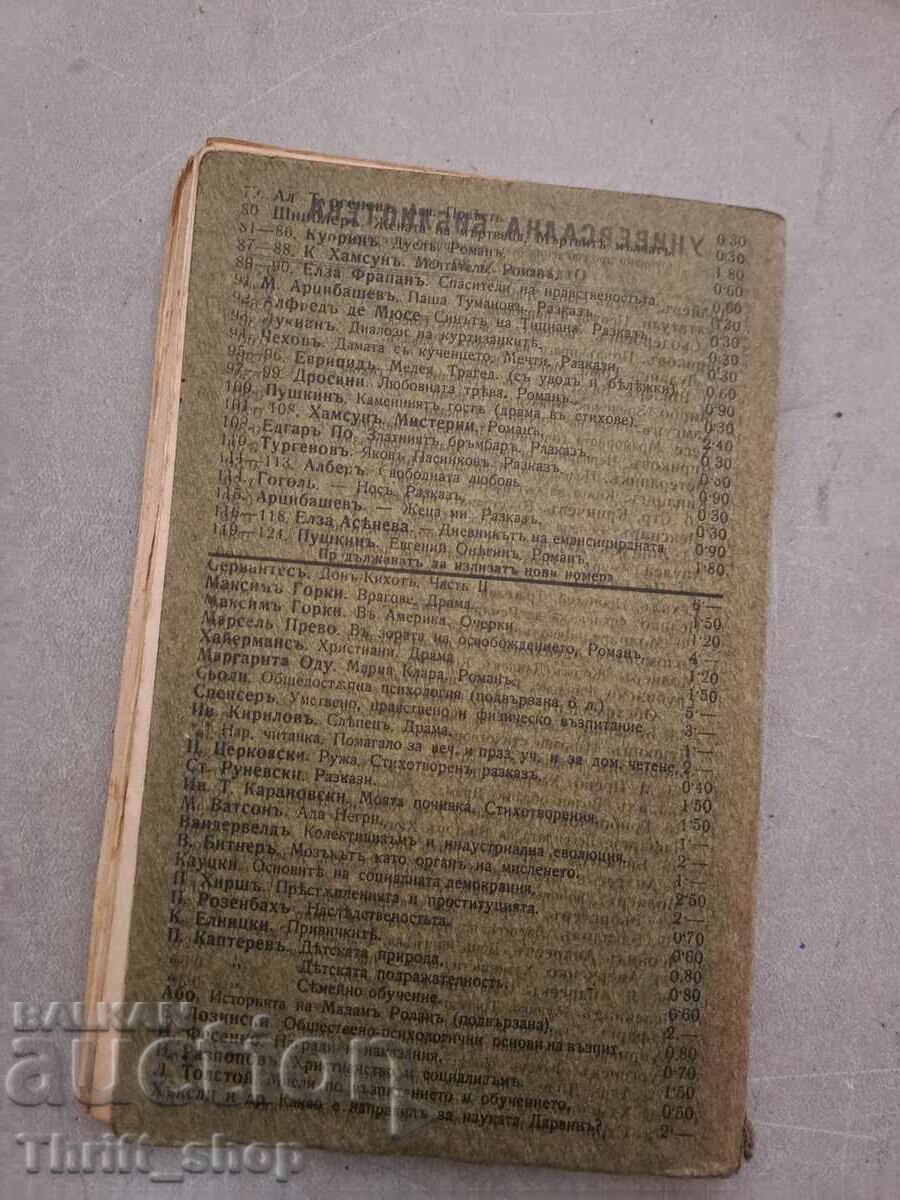 79. Ал Тургеневъ. Ася. Повѣсть 0·30
80 Шницлеръ. Жената на мъртвеца. Мъртвитѣ мълчатъ 0·30
81—86. Купринъ. Дуелъ. Романъ. 1·80
87—88. К Хамсунъ. Мечтатель. Романъ. 0·60
89—90. Елза Фрапанъ. Спасители на нравствеността. 0·60
М. Арцибашевъ. Паша Тумановъ. Разказъ 0·30
Алфредъ де Мюсе. Синътъ на Тициана. Разказъ 0·30
Лукианъ. Диалози на куртизанкитѣ. 0·30
Чеховъ. Дамата съ кученцето, Мечти. Разкази 0·30
95—96. Еврипидъ. Медея. Трагед. (съ уводъ и бѣлѣжки) 0·60
97—99. Дросини. Любовната трѣва. Романъ. 0·90
100. Пушкинъ. Каменниятъ гость (драма въ стихове). 0·30
101—108. Хамсунъ. Мистерии. Романъ. 2·40
109. Едгаръ По. Златниятъ бръмбаръ. Разказъ 0·30
110. Тургеновъ. Яковъ Пасинковъ. Разказъ
111—113. Алберъ. Свободната любовь 0·90
114. Гоголь. — Носъ. Разказъ 0·30
115. Арцибашевъ. — Жена ми Разказъ 0·30
116—118. Елза Асѣнева. — Дневникътъ на емансипирдната 0·90
119—124. Пушкинъ. Евгений Онѣгинъ. Романъ. 1·80
Пр дължаватъ да излизатъ нови номера
УНИВЕРСАЛНА БИБЛИОТЕКА
Сервантесъ. Донъ-Кихотъ. Часть II 6·—
Максимъ Горки. Врагове. Драма. 1·50
Максимъ Горки. Въ Америка. Очерки. 1·20
Марсель Прево. Въ зората на освобождението. Романъ. 4·—
Хайермансъ. Християни. Драма 1·20
Маргарита Оду. Мария Клара. Романъ. 1·50
Сьоли. Общедостѫпна психология (подвързана 6 л.) 5·—
Спенсеръ. Умствено, нравствено и физическо възпитание 3·—
Ив. Кириловъ. Слѣпецъ. Драма. 1·—
„ Нар. читанка. Помагало за веч. и празд. уч. и за дом. четене. 2·—
Ц. Церковски. Ружа. Стихотворенъ разказъ. 0·40
Ст. Руневски. Разкази. 1·50
Ив. Т. Карановски. Моята почивка. Стихотворения 1·50
М. Ватсонъ. Ада Негри. 1·—
Вандервелдъ Колективизъмъ и индустриална еволюция. 2·—
В. Битнеръ. Мозъкътъ като органъ на мисленето. 1·—
Кауцки. Основитѣ на социалната демокрация. 2·50
П. Хиршъ. Прѣстѫпленията и проституцията. 2·—
П. Розенбахъ Наслѣдствеността. 0·70
К. Елницки. Привичкитѣ. 0·60
П. Каптеревъ. Дѣтската природа. 0.80
„ „ Дѣтската подражателность. 0·80
„ „ Сѣмейно обучение. 0·60
Або. Историята на Мадамъ Роланъ (подвързана). 2·—
Лозински Общественно-психологични основи на възпит. 0.80
Фесенко. Награди и наказания. 0·70
Н. Разпоповъ. Християнство и социализъмъ 1·50
Л Толстой. Мисли по възпитанието и обучението. 0,50
Хъксли и др. Какво е направилъ за науката Дарвинъ? 2·—
BALKAN auction
Thrift_shop